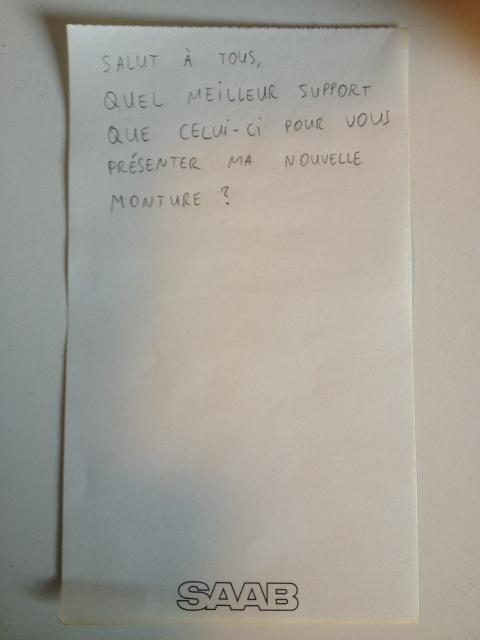 SALUT À TOUS,
QUEL MEILLEUR SUPPORT
QUE CELUI-CI POUR VOUS
PRÉSENTER MA NOUVELLE
MONTURE ?
SAAB